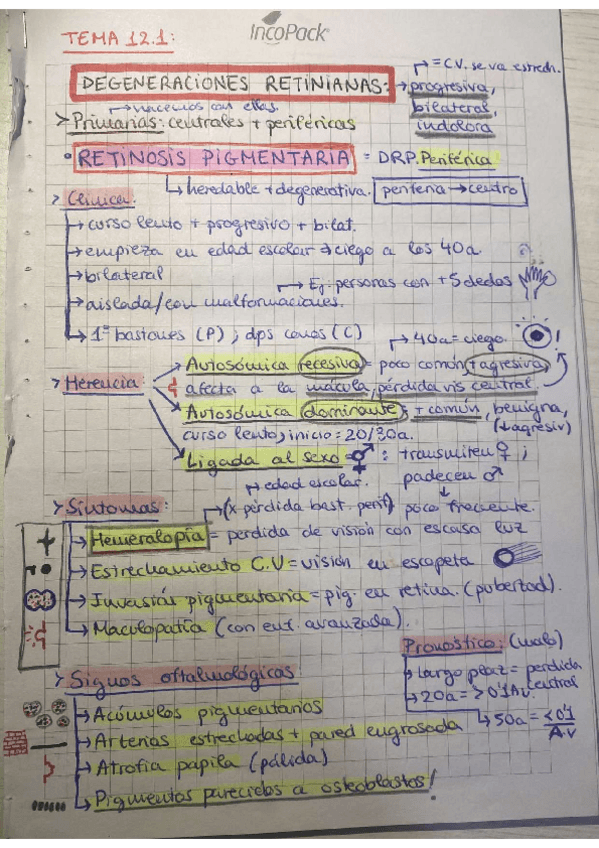 IncoPack
TEMA 12.1:
= C.V. se va estrech.
DEGENERACIONES RETINIANAS: progresiva,
nacemos con ellas. bilateral,
> Primarias: centrales + periféricas indolora
• RETINOSIS PIGMENTARIA = DRP. Periférica
heredable + degenerativa. periferia → centro
> Clínica:
→ curso lento + progresivo + bilat.
→ empieza en edad escolar → ciego a los 40a
→ bilateral → Ej: personas con +5 dedos
→ aislada/con malformaciones.
→ 1º bastones (P) ; dps conos (C) → 40a = ciego !
→ Autosómica recesiva = poco común, + agresiva,
> Herencia: afecta a la mácula, pérdida vis central.
→ Autosómica dominante: + común, benigna,
curso lento; inicio = 20/30a. (↓agresiv)
→ Ligada al sexo = ⚥ : transmiten ♀ ;
→ edad escolar. padecen ♂
> Síntomas: → (x pérdida bast. perif) poco frecuente.
→ Hemeralopía = perdida de visión con escasa luz
→ Estrechamiento C.V = visión en escopeta
→ Invasión pigmentaria = pig. en retina. (pubertad).
→ Maculopatía (con enf. avanzada).
Pronóstico: (malo)
> Signos oftalmológicos → Largo plazo = perdida central
→ 20a = > 0'1 Av
→ 50a = < 0'1 A.v
→ Acúmulos pigmentarios
→ Arterias estrechadas + pared engrosada
→ Atrofia papila (pálida)
→ Pigmentos parecidos a osteoblastos!